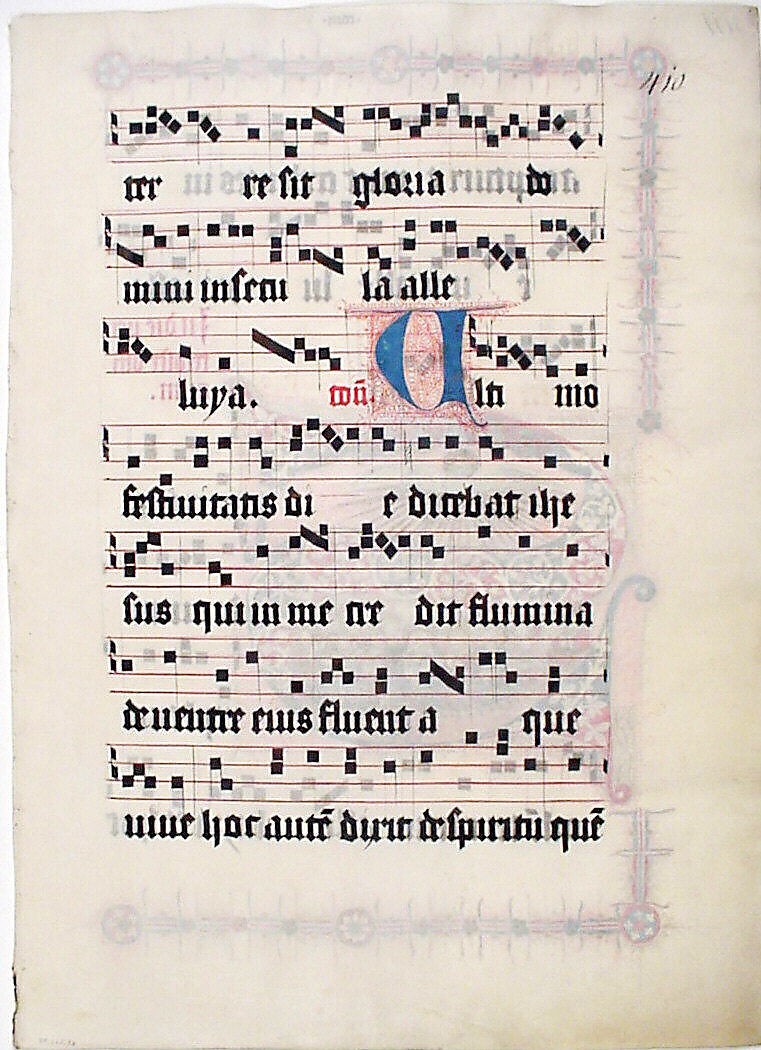 410
ter re sit gloria do
mini in secu la alle
luya. cōū. Ulti mo
festiuitatis di e dicebat ihe
sus qui in me cre dit flumina
de uentre eius fluent a que
uiue hoc autē dixit de spiritū quē